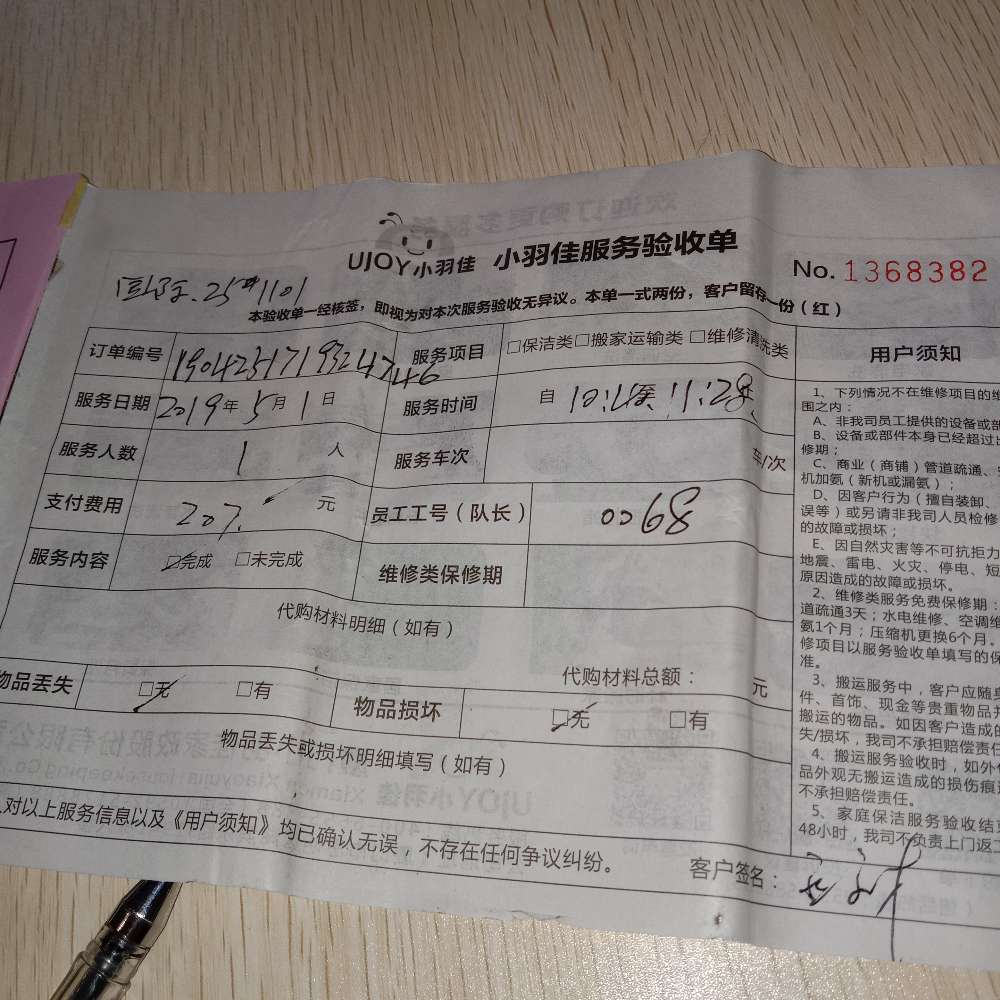 UJOY小羽佳 小羽佳服务验收单
No. 1368382
25#1101
本验收单一经核签，即视为对本次服务验收无异议。本单一式两份，客户留存一份（红）
订单编号 190423171932474746 服务项目 □保洁类□搬家运输类 □维修清洗类
服务日期 2019年5月1日 服务时间 自 11:28
服务人数 1 人 服务车次 车/次
支付费用 207. 元 员工工号（队长） 0068
服务内容 □完成 □未完成 维修类保修期
代购材料明细（如有）
代购材料总额： 元
物品丢失 □无 □有 物品损坏 □无 □有
物品丢失或损坏明细填写（如有）
对以上服务信息以及《用户须知》均已确认无误，不存在任何争议纠纷。
客户签名：
用户须知
1、下列情况不在维修项目的维
围之内：
A、非我司员工提供的设备或部
B、设备或部件本身已经超过
修期；
C、商业（商铺）管道疏通、
机加氨（新机或漏氨）；
D、因客户行为（擅自装卸、
误等）或另请非我司人员检修
的故障或损坏；
E、因自然灾害等不可抗拒力
地震、雷电、火灾、停电、短
原因造成的故障或损坏。
2、维修类服务免费保修期：
道疏通3天；水电维修、空调维
氨1个月；压缩机更换6个月。
修项目以服务验收单填写的保
准。
3、搬运服务中，客户应随身
件、首饰、现金等贵重物品
搬运的物品。如因客户造成的
失/损坏，我司不承担赔偿责任
4、搬运服务验收时，如外
品外观无搬运造成的损伤痕
不承担赔偿责任。
5、家庭保洁服务验收结
48小时，我司不负责上门返工